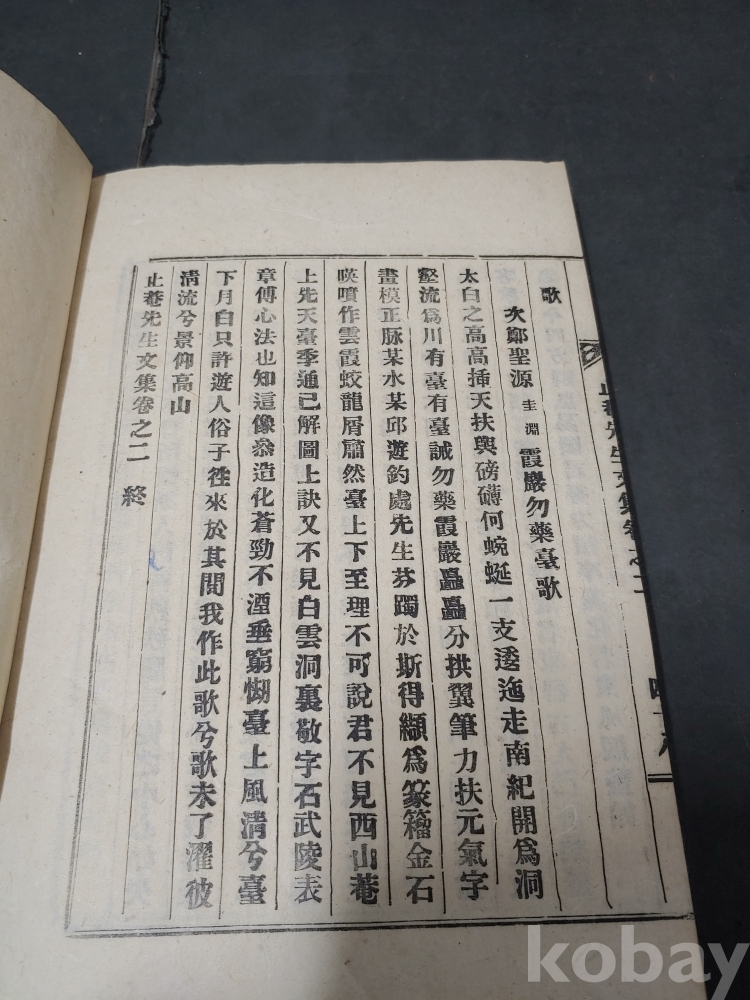 歌
次鄭聖源 圭淵 霞巖勿藥臺歌
太白之高高揷天扶輿磅礴何蜿蜒一支逶迤走南紀開爲洞
壑流爲川有臺有臺誠勿藥霞巖矗矗分拱翼筆力扶元氣字
畫模正脉某水某邱遊釣處先生芬躅於斯得纈爲篆籒金石
暎噴作雲霞蛟龍屑蕭然臺上下至理不可說君不見西山菴
上先天臺季通已解圖上訣又不見白雲洞裏敬字石武陵表
章傳心法也知這像叅造化蒼勁不湮垂窮惚臺上風淸兮臺
下月白只許遊人俗子徃來於其間我作此歌兮歌未了濯彼
淸流兮景仰高山
止菴先生文集卷之二 終
止菴先生文集卷之二
kobay